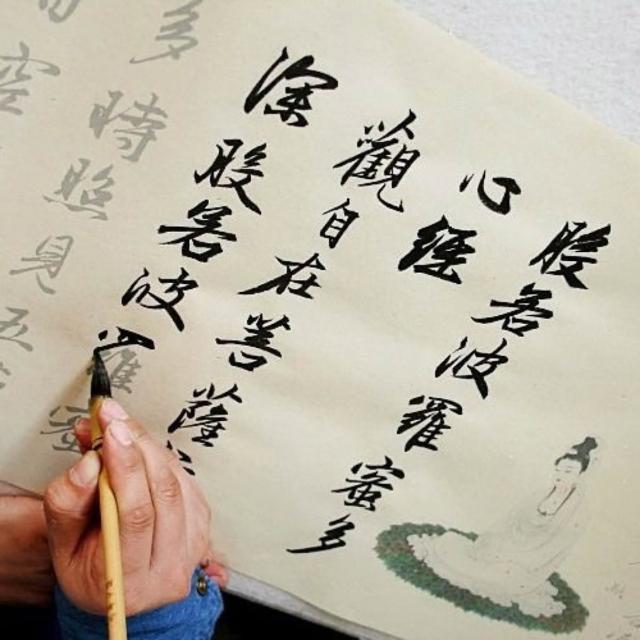 般若波羅蜜多
心經
觀自在菩薩
深般若波羅蜜
多時照見五
空